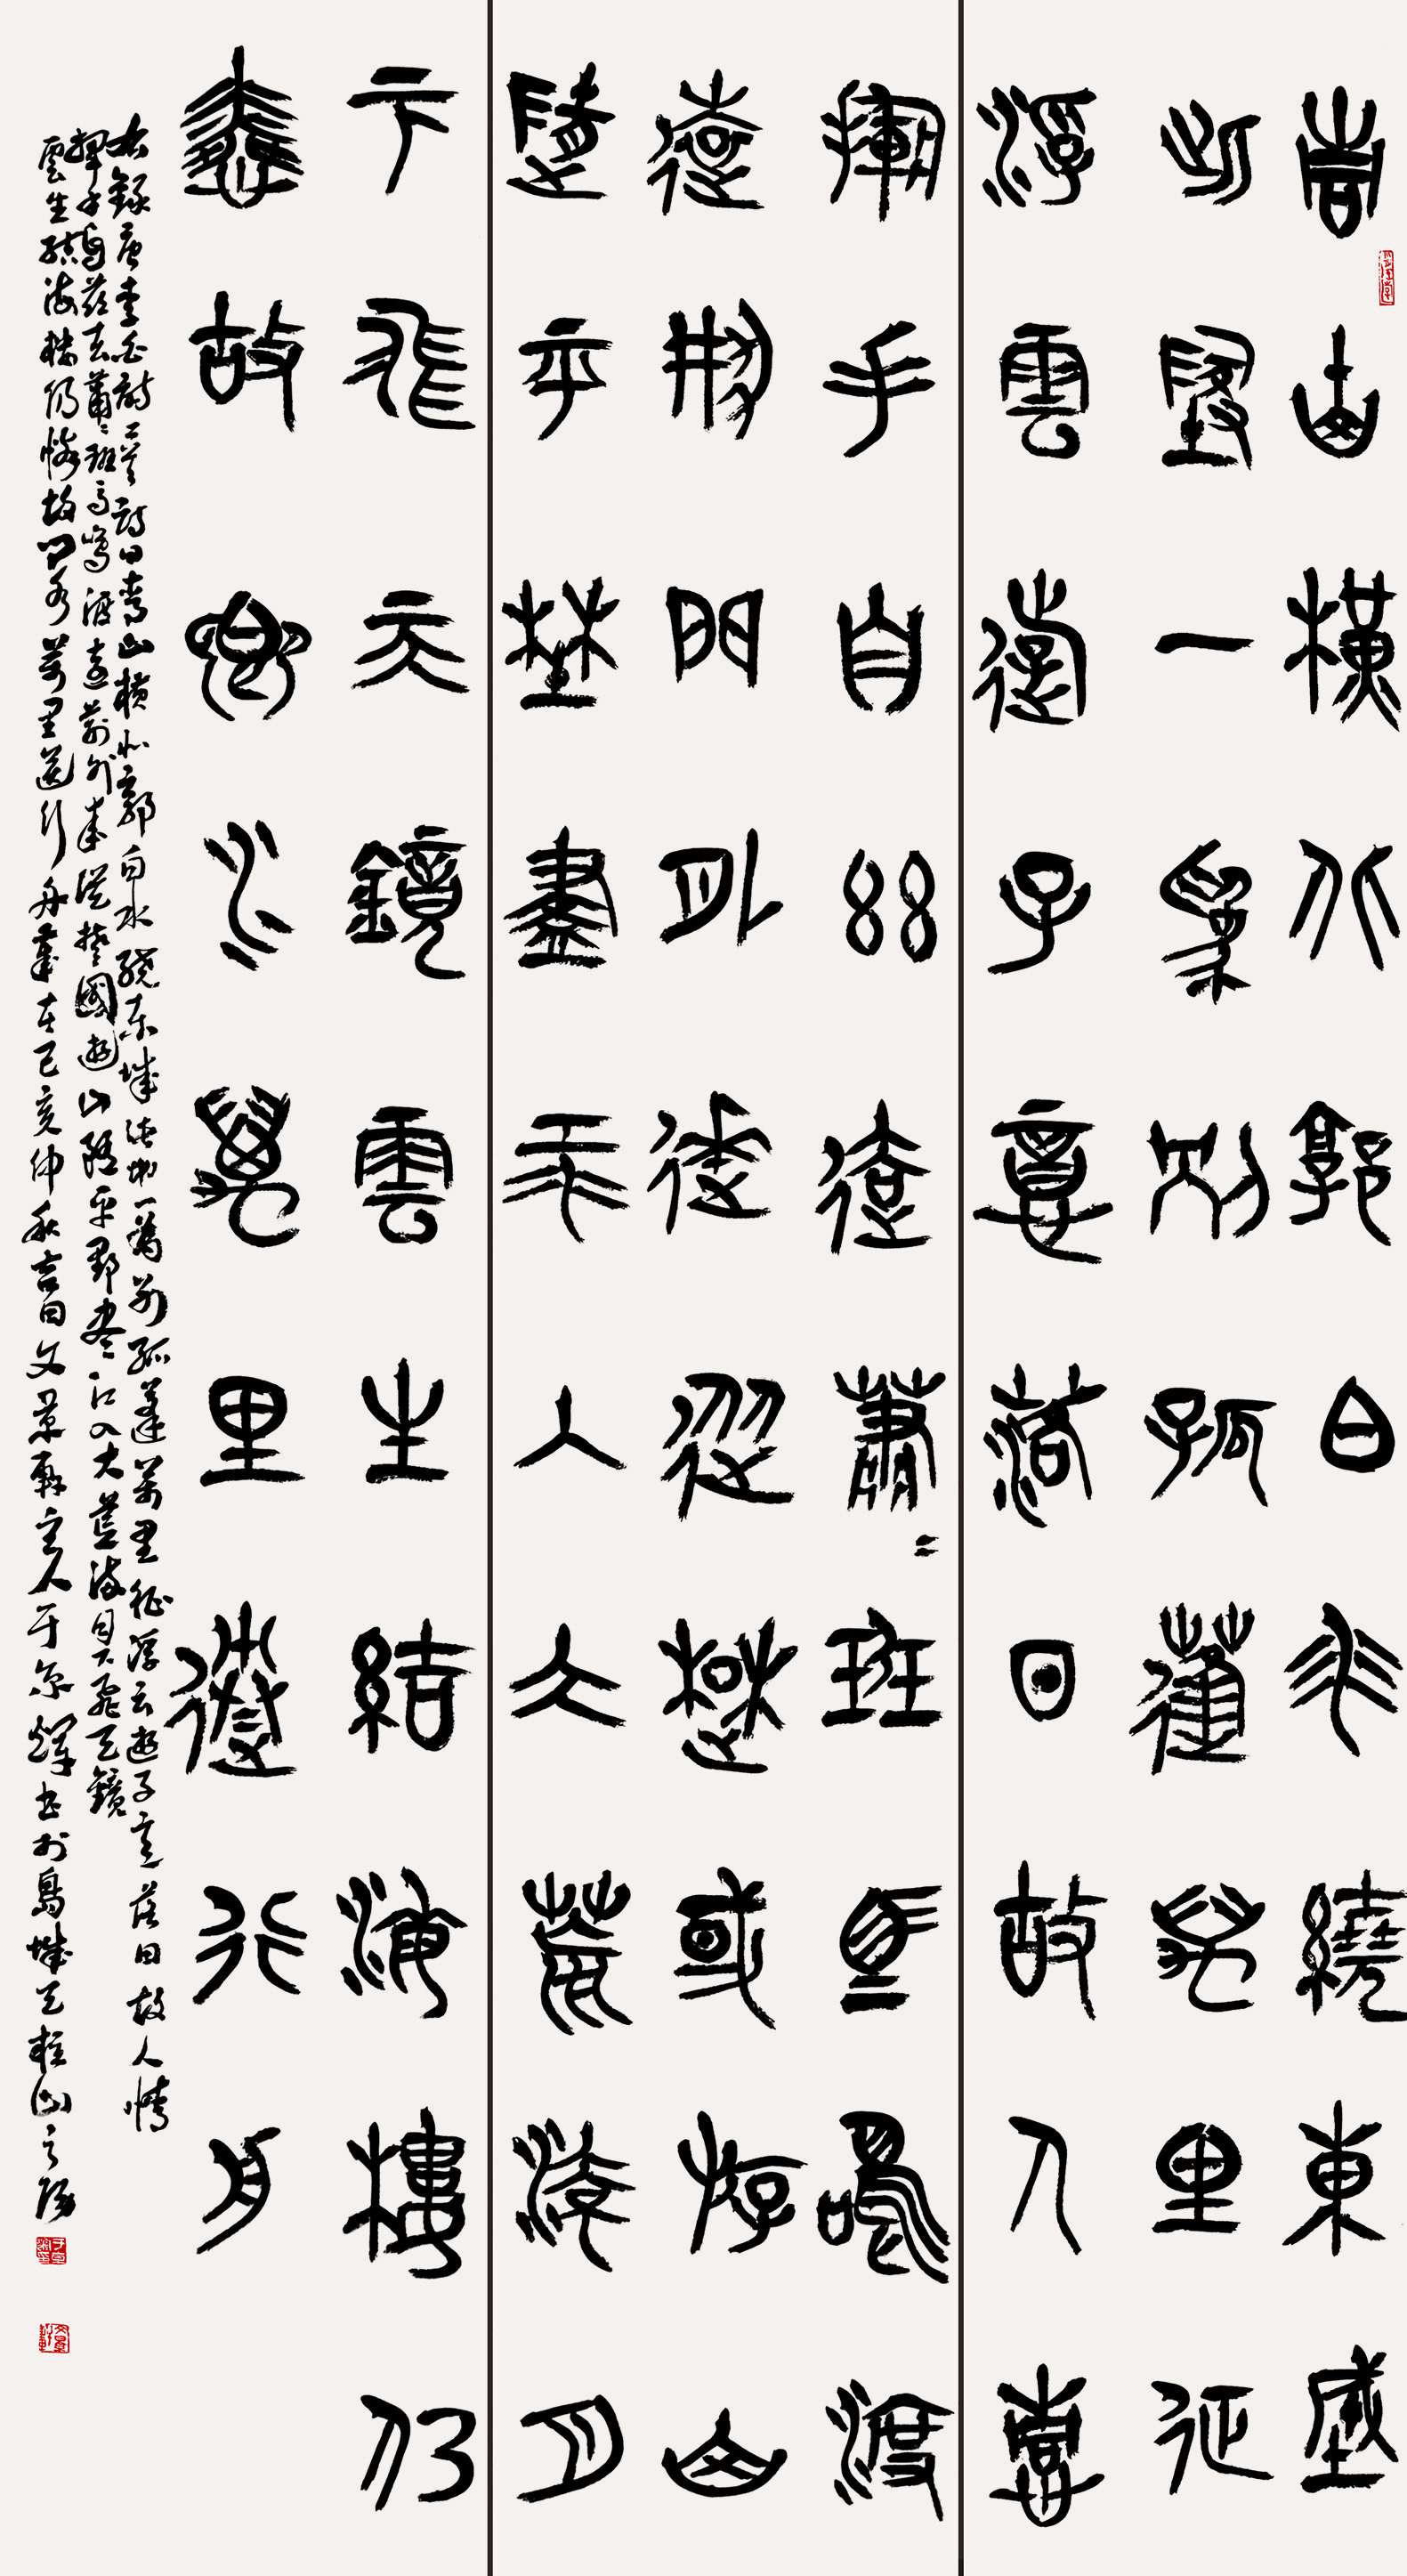 青山橫北郭白水繞東城
此地一為別孤蓬萬里征
浮雲遊子意落日故人情
揮手自茲遠蕭=班馬鳴渡
遠荊門外來從楚國游山
隨平野盡江入大荒流月
下飛天鏡雲生結海樓仍
憐故鄉水萬里送行舟
右錄唐李白詩二首詩曰青山橫北郭白水繞東城此地一為別孤蓬萬里征浮云遊子意落日故人情
揮手自茲去蕭=班馬鳴渡遠荊外來從楚國遊山隨平野盡江入大荒流月下飛天鏡
雲生結海樓仍憐故鄉水萬里送行舟歲在己亥仲秋吉日文景軒主人于書於島城天柱山之陽